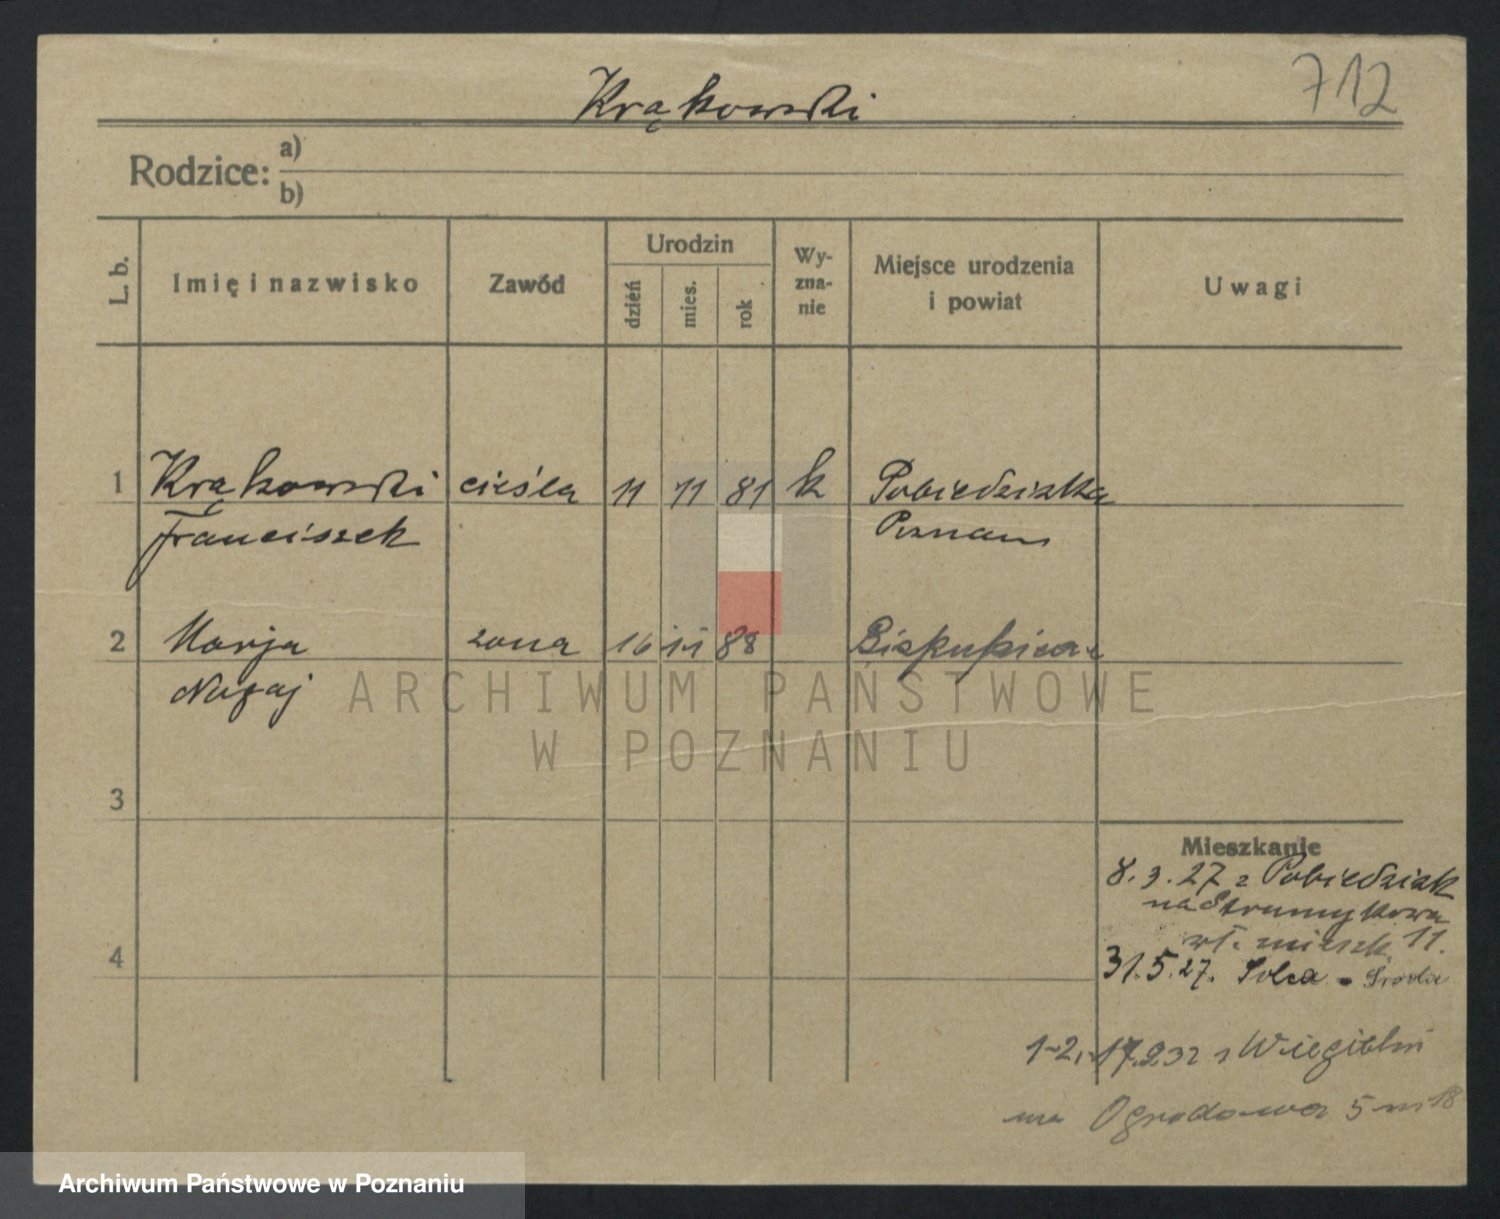 712
Krąkowski
Rodzice: a)
b)
L. b.
Imię i nazwisko
Zawód
Urodzin
dzień
mies.
rok
Wy-
zna-
nie
Miejsce urodzenia
i powiat
Uwagi
1 Krąkowski cieśla 11 11 81 k Pobiedziska
Franciszek Poznań
2 Marja żona 16 11 88 Biskupice
ARCHIWUM PAŃSTWOWE
W POZNANIU
3
Mieszkanie
8.3.27 z Pobiedzisk
na Strumykowa
wł. mieszk. 11.
4
31.5.27. - Środa
1-2,
na Ogrodowa 5 m 18
Archiwum Państwowe w Poznaniu